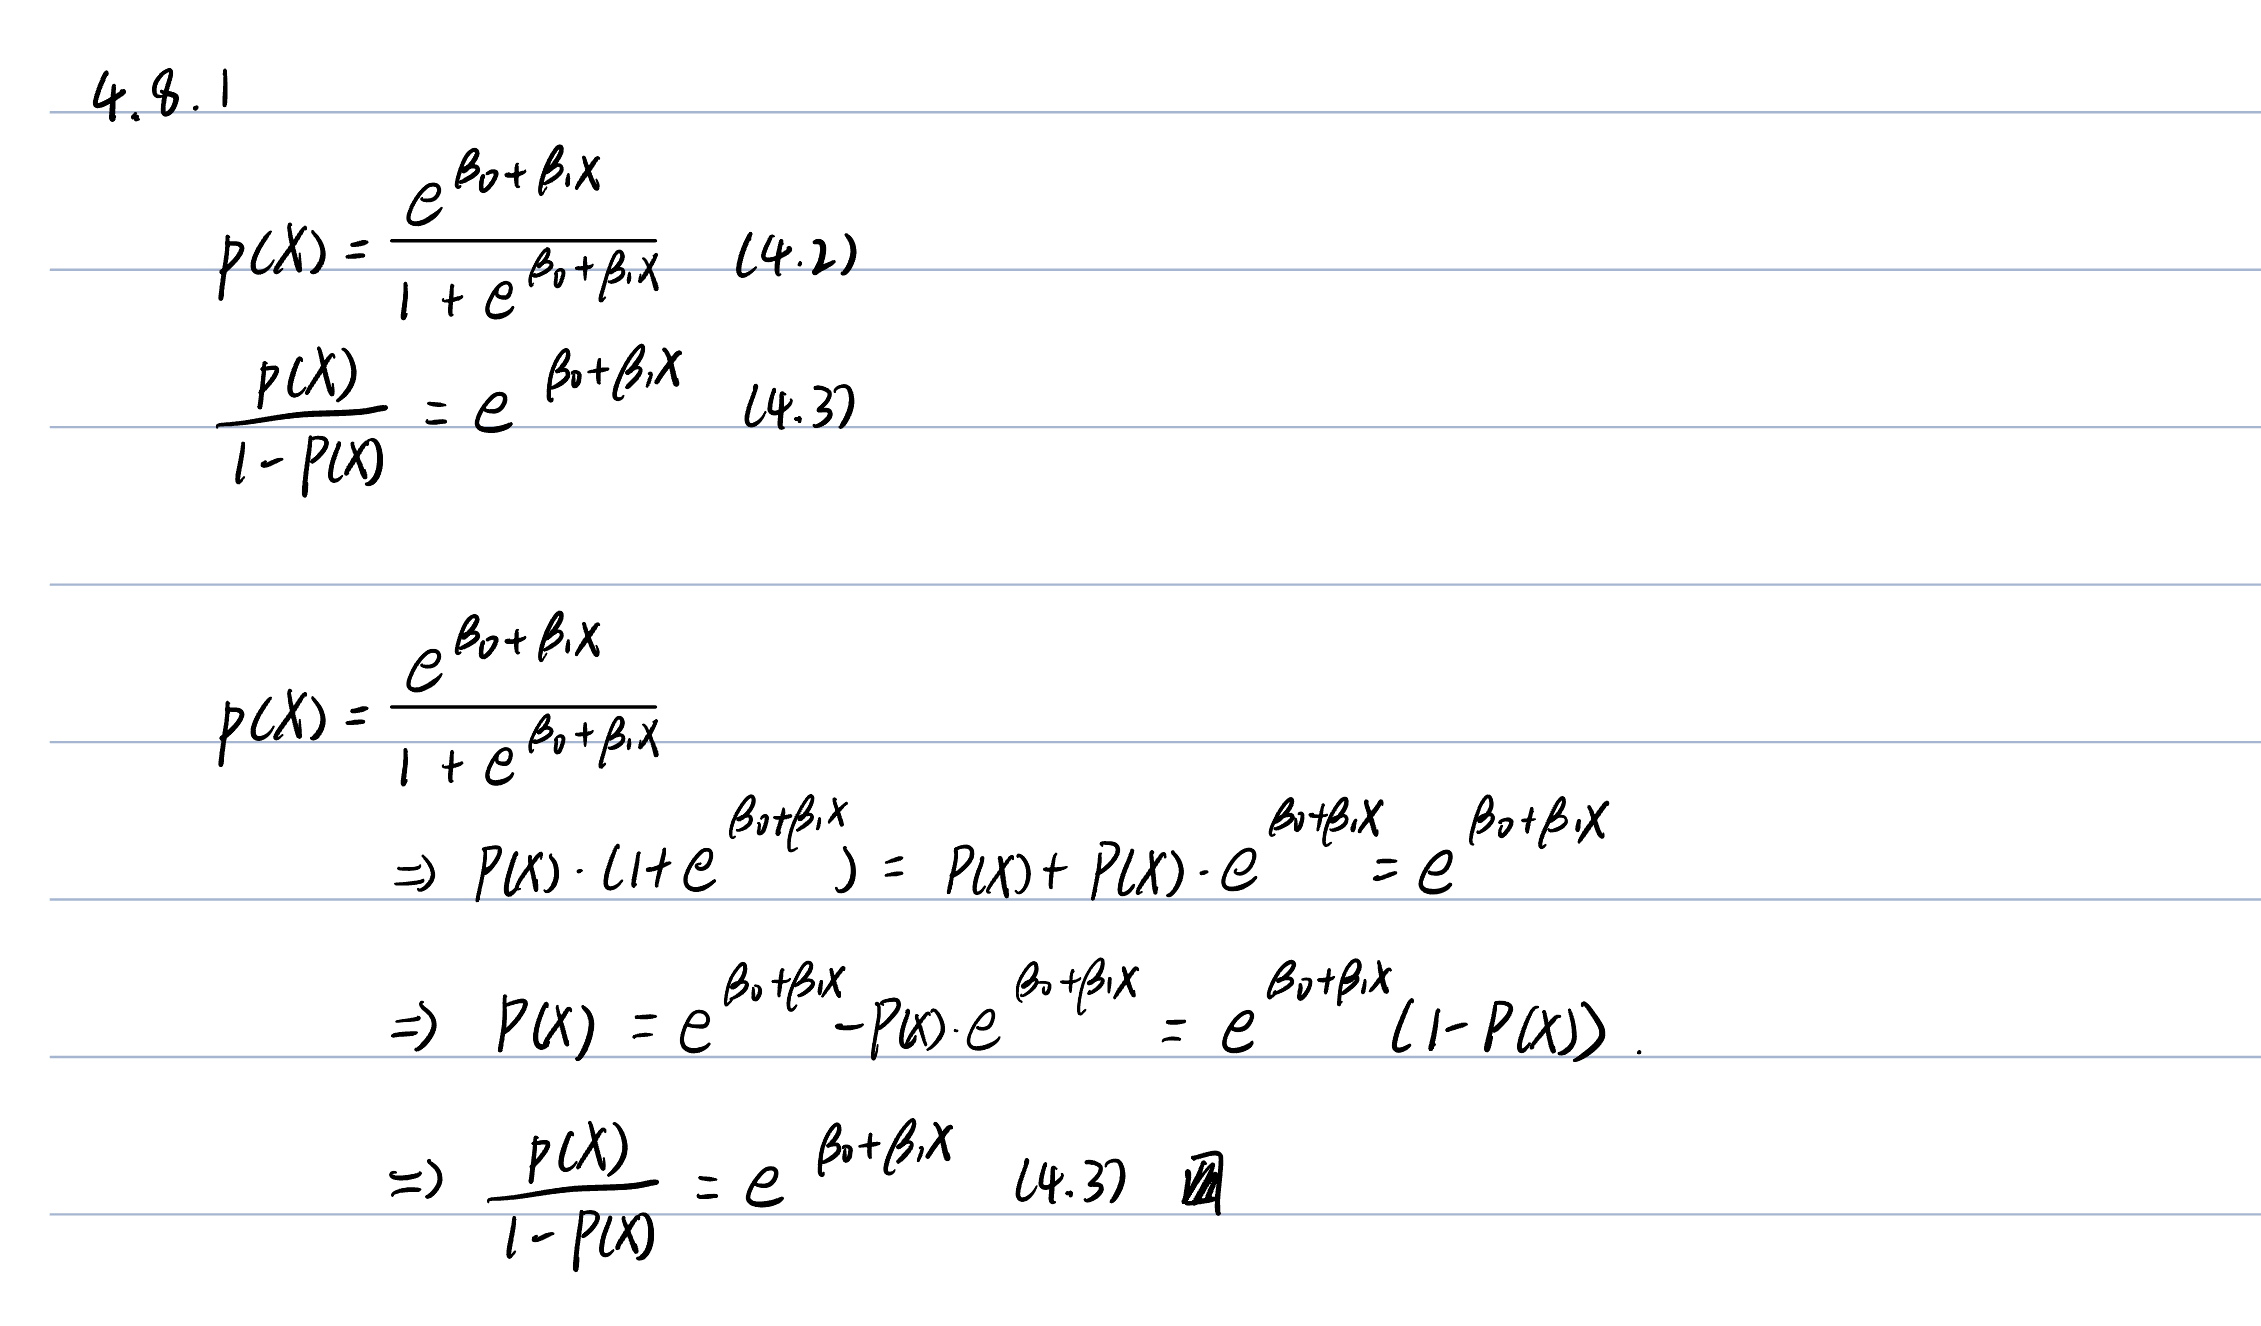 4.8.1
p(X) = e^{β₀+β₁X} / (1 + e^{β₀+β₁X}) (4.2)
p(X) / (1 - P(X)) = e^{β₀+β₁X} (4.3)
p(X) = e^{β₀+β₁X} / (1 + e^{β₀+β₁X})
⇒ P(X) · (1 + e^{β₀+β₁X}) = P(X) + P(X) · e^{β₀+β₁X} = e^{β₀+β₁X}
⇒ P(X) = e^{β₀+β₁X} - P(X) · e^{β₀+β₁X} = e^{β₀+β₁X} (1 - P(X)).
⇒ p(X) / (1 - P(X)) = e^{β₀+β₁X} (4.3) ∎